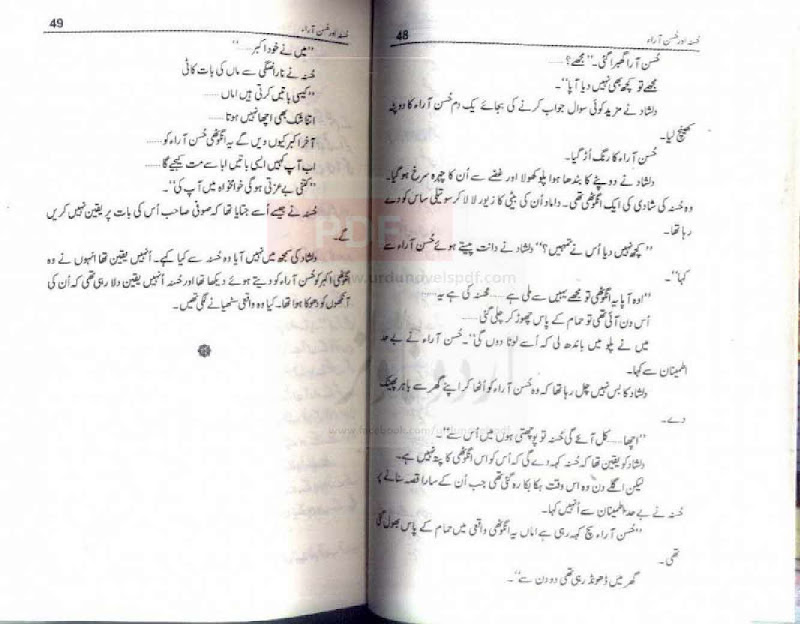 48
حُسنہ اور حُسن آراء
حُسن آرا گھبرا گئی۔ ”مجھے؟......
مجھے تو کچھ بھی نہیں دیا آپا“۔
دلشاد نے مزید کوئی سوال جواب کرنے کی بجائے یک دم حُسن آراء کا دوپٹہ
کھینچ لیا۔
حُسن آراء کا رنگ اُڑ گیا۔
دلشاد نے دوپٹے کا بندھا ہوا پلو کھولا اور غصے سے اُن کا چہرہ سرخ ہو گیا۔
وہ حُسنہ کی شادی کی ایک انگوٹھی تھی۔ داماد اُن کی بیٹی کا زیور لا لا کر سوتیلی ساس کو دے
رہا تھا۔
”کچھ نہیں دیا اُس نے تمہیں؟“ دلشاد نے دانت پیستے ہوئے حُسن آراء سے
کہا“۔
”اوہ آپا یہ انگوٹھی تو مجھے یہیں سے ملی ہے...... حُسنہ کی ہے یہ......
اُس دن آئی تھی تو حمام کے پاس چھوڑ کر چلی گئی......
میں نے پلو میں باندھ لی کہ اُسے لوٹا دوں گی“۔ حُسن آراء نے بے حد
اطمینان سے کہا۔
دلشاد کا بس نہیں چل رہا تھا کہ وہ حُسن آراء کو اُٹھا کر اپنے گھر سے باہر پھینک
دے۔
”اچھا...... کل آئے گی حُسنہ تو پوچھتی ہوں میں اُس سے“۔
دلشاد کو یقین تھا کہ حُسنہ کہہ دے گی کہ اُس کو اس انگوٹھی کا پتہ نہیں ہے۔
لیکن اگلے دن وہ اس وقت ہکا بکا رہ گئی تھی جب اُن کے سارا قصہ سنانے پر
حُسنہ نے بے حد اطمینان سے اُنہیں کہا۔
”حُسن آراء سچ کہہ رہی ہے اماں یہ انگوٹھی واقعی میں حمام کے پاس بھول گئی
تھی۔
گھر میں ڈھونڈ رہی تھی دو دن سے“۔
49
حُسنہ اور حُسن آراء
”میں نے خود اکبر......“
حُسنہ نے ناراضگی سے ماں کی بات کاٹی
”کیسی باتیں کرتی ہیں اماں......
اتنا شک بھی اچھا نہیں ہوتا......
آخر اکبر کیوں دیں گے یہ انگوٹھی حُسن آراء کو......
اب آپ کہیں ایسی باتیں ابا سے مت کیجیے گا......
”کتنی بے عزتی ہوگی خوامخواہ میں آپ کی“۔
حُسنہ نے جیسے اُسے جتایا تھا کہ صوفی صاحب اُس کی بات پر یقین نہیں کریں
گے۔
دلشاد کی سمجھ میں نہیں آیا وہ حُسنہ سے کیا کہے۔ اُنہیں یقین تھا انہوں نے وہ
انگوٹھی اکبر کو حُسن آراء کو دیتے ہوئے دیکھا تھا اور حُسنہ اُنہیں یقین دلا رہی تھی کہ اُن کی
آنکھوں کو دھوکا ہوا تھا۔ کیا وہ واقعی سٹھیانے لگی تھیں۔
PDF
www.urdunovelspdf.com
اردو ناولز
www.facebook.com/urdunovelspdf